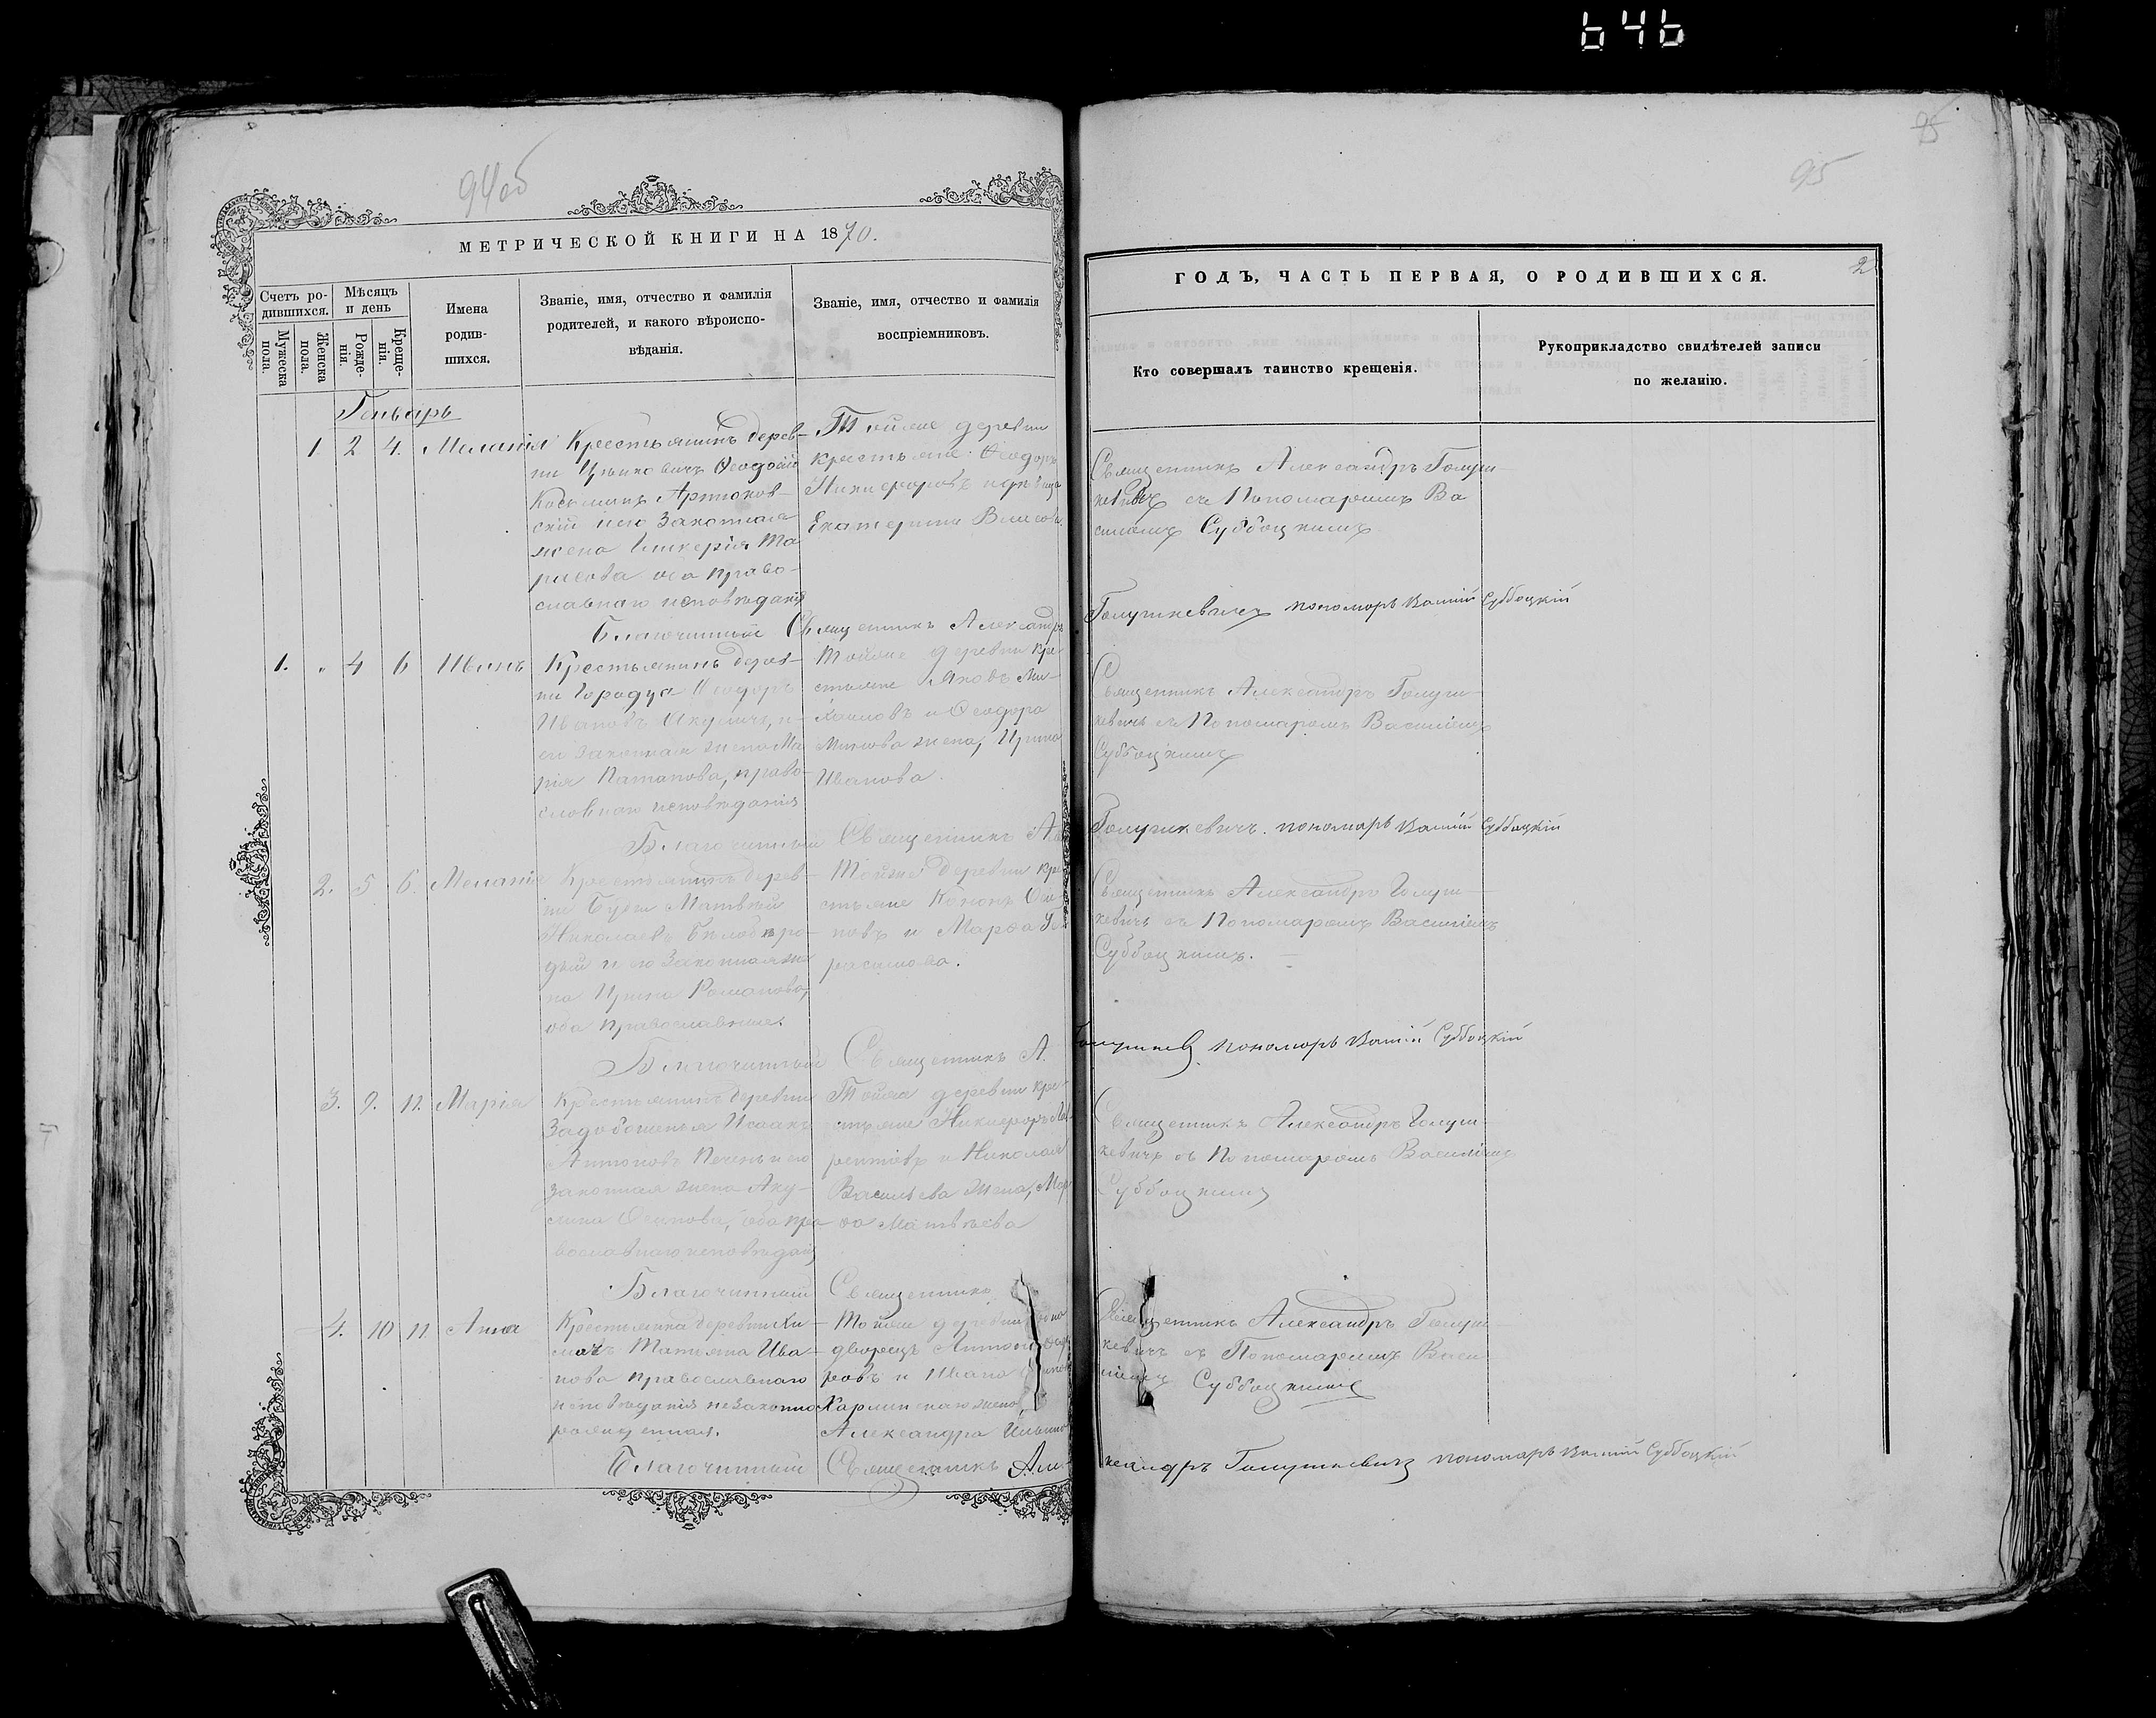 646
94об
МЕТРИЧЕСКОЙ КНИГИ НА 1870.
Счетъ ро-
дившихся.
Мужеска
пола.
Женска
пола.
Мѣсяцъ
и день
Рожде-
нія.
Креще-
нія.
Имена
родив-
шихся.
Званіе, имя, отчество и фамилія
родителей, и какого вѣроиспо-
вѣданія.
Званіе, имя, отчество и фамилія
воспріемниковъ.
Генварь
1 2 4. Меланія
Крестьянинъ дерев-
ни Ѳеодосій
Косьминъ
скій и его законная
жена Гликерія
расова оба право-
славнаго исповѣданія
Тойже деревни
крестьяне Ѳеодоръ
Никифоровъ и дѣвица
Екатерина
Благочинный Священникъ Александръ
1. 4 6 Иванъ
Крестьянинъ дерев-
ни Городца Ѳеодоръ
Ивановъ Акуличъ, и
его законная жена Ма
рія право-
славнаго исповѣданія
Тойже деревни кре
стьяне Яковъ Ми-
хаиловъ и Ѳеодора
жена, Ирина
Иванова.
Благочинный Священникъ Ал
2. 5 6. Меланія
Крестьянинъ дерев-
ни Матвѣй
Николаевъ
и его законная же
на Ирина Романова,
оба православные.
Тойже деревни кре
стьяне Кононъ Оси-
повъ и Марѳа Ге
расимова.
Благочинный Священникъ А.
3. 9. 11. Марія
Крестьянинъ деревни
Исаакъ
Антоновъ и его
законная жена Аку-
лина Осипова, оба пра
вославнаго исповѣданія
Тойже деревни кре-
стьяне Никифоръ Лав-
рентіевъ и Николая
Васильева жена, Мар
ѳа Матвѣева
Благочинный Священникъ
4. 10 11 Анна
Крестьянка деревни
Татьяна Ива-
нова православнаго
исповѣданія незаконно
рожденная.
Тойже деревни одно
дворецъ Антоній
ровъ и Ивана
жена,
Александра
Благочинный Священникъ Але-
95
95
ГОДЪ, ЧАСТЬ ПЕРВАЯ, О РОДИВШИХСЯ.
2
Кто совершалъ таинство крещенія.
Рукоприкладство свидѣтелей записи
по желанію.
Священникъ Александръ Голуш-
кевичъ съ Пономаремъ Ва
силіемъ Суббоцкимъ
Голушкевичъ пономарь Василій Суббоцкій
Священникъ Александръ Голуш-
кевичъ съ Пономаремъ Василіемъ
Суббоцкимъ
Голушкевичъ. пономарь Василій Суббоцкій
Священникъ Александръ Голуш-
кевичъ съ Пономаремъ Василіемъ
Суббоцкимъ.
Голушкев пономарь Василій Суббоцкій
Священникъ Александръ Голуш-
кевичъ съ Пономаремъ Василіемъ
Суббоцкимъ
Священникъ Александръ Голуш-
кевичъ съ Пономаремъ Васи-
ліемъ Суббоцкимъ
ксандръ Голушкевичъ пономарь Василій Суббоцкій